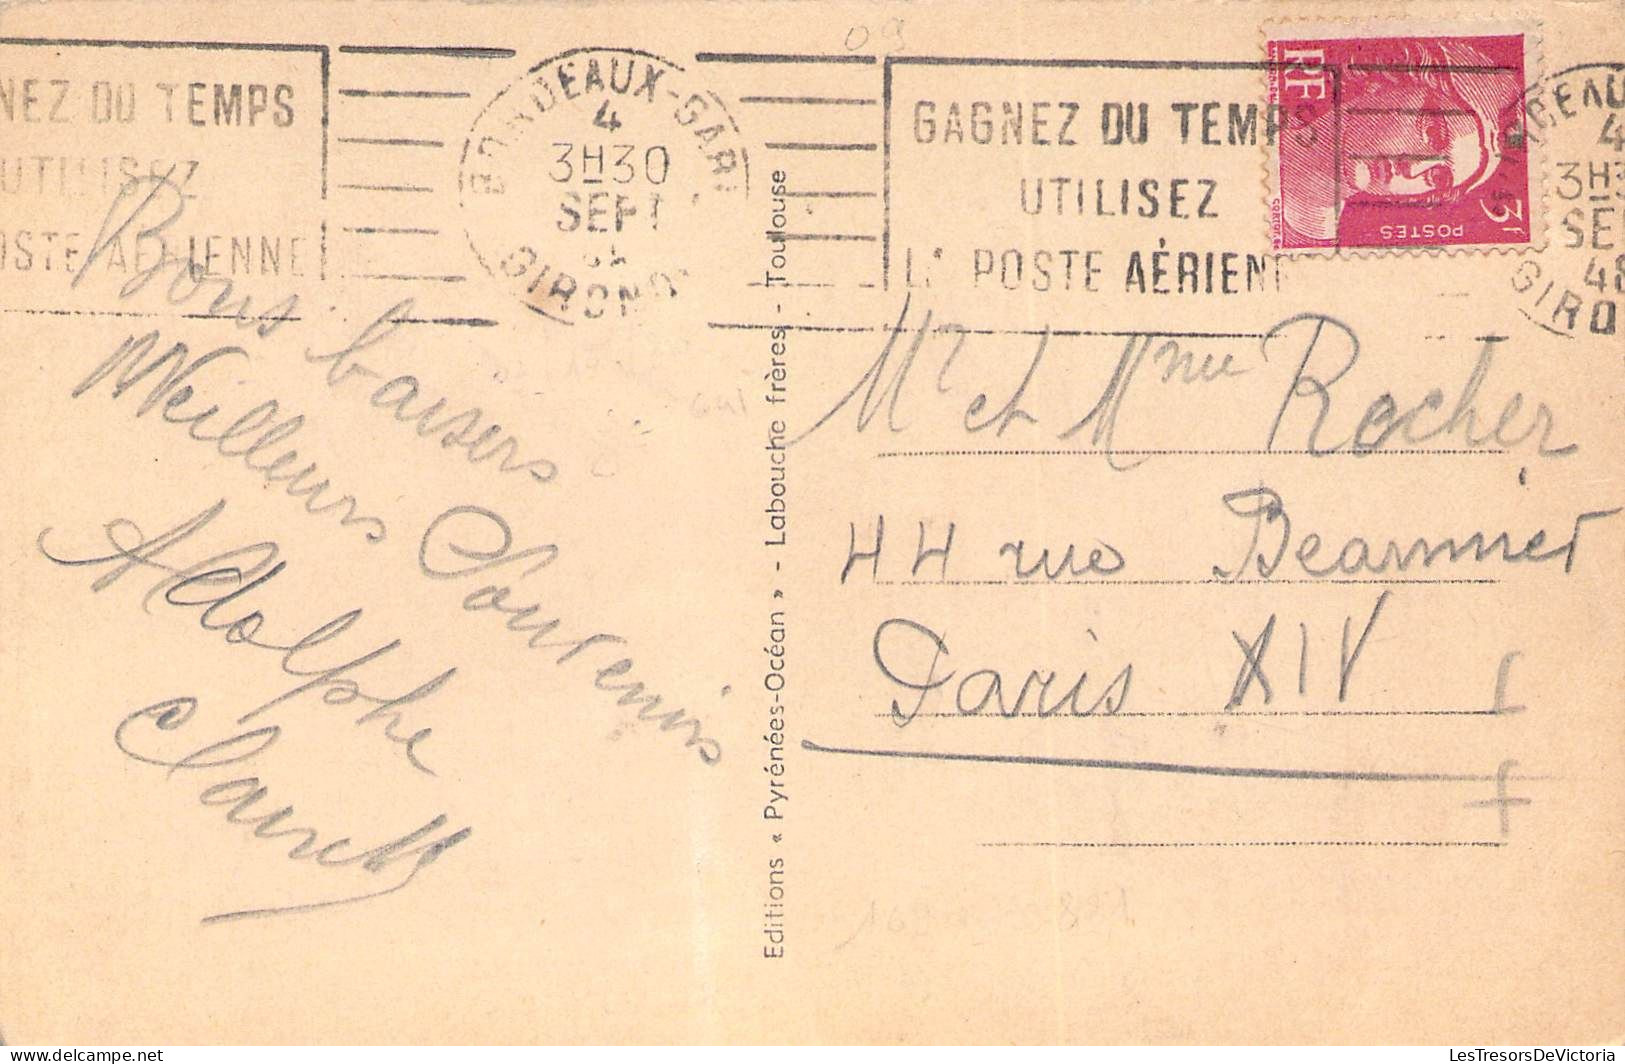 09
NEZ DU TEMPS
UTILISEZ
OSTE AÉRIENNE
BORDEAUX-GARE
4
3H30
SEPT
GIRONDE
GAGNEZ DU TEMPS
UTILISEZ
LA POSTE AÉRIENNE
RF
POSTES
3F
4
3H3
SEP
48
GIRO
Bons baisers
Meilleurs Souvenirs
Adolphe
Editions « Pyrénées-Océan » - Labouche frères - Toulouse
Mr et Mme Rocher
44 rue Beaunier
Paris XIV
delcampe.net
LesTresorsDeVictoria